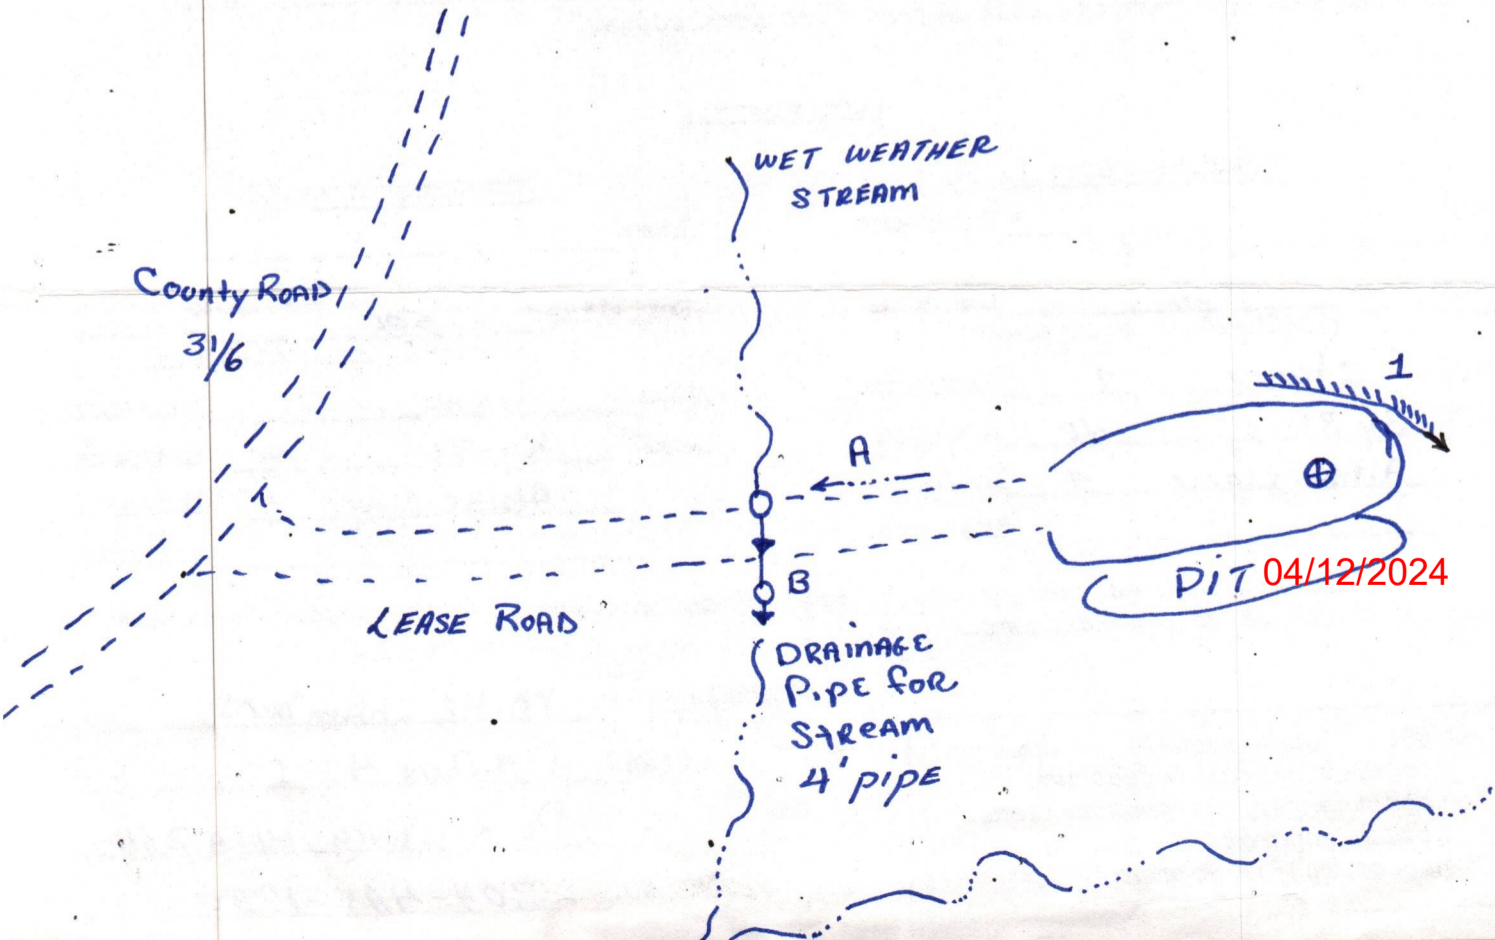 WET WEATHER
STREAM
County ROAD
31/6
1
A
PIT 04/12/2024
B
LEASE ROAD
DRAINAGE
PIPE FOR
STREAM
4' PIPE